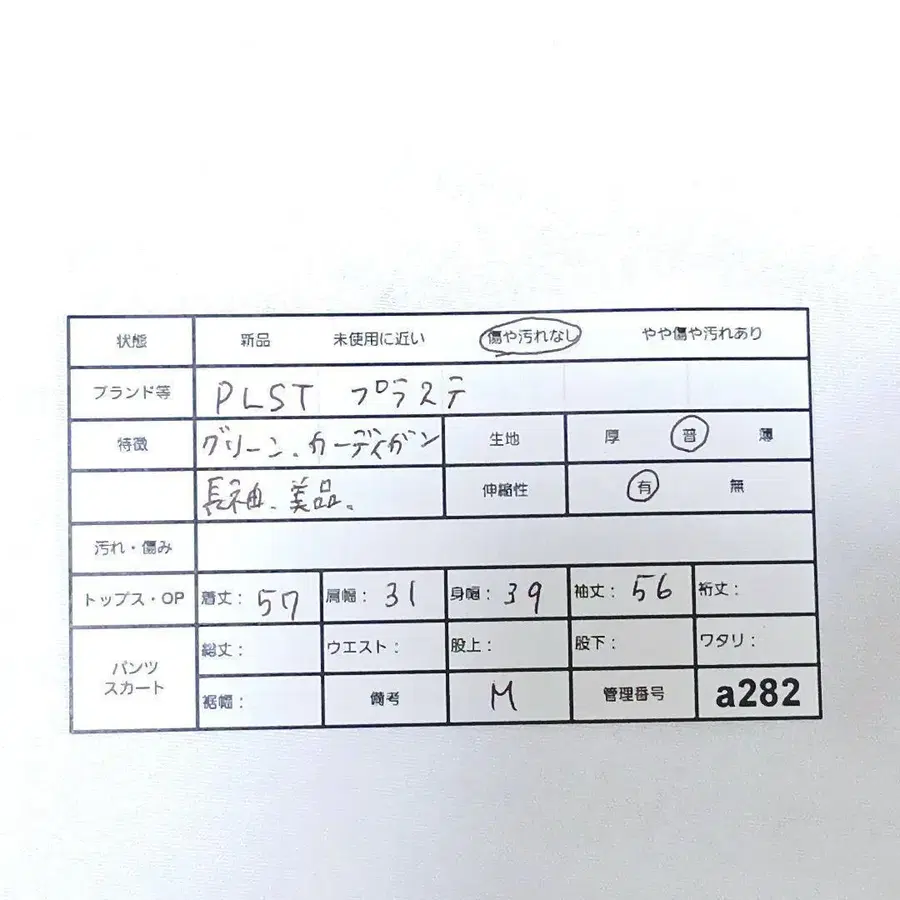 状態 新品 未使用に近い 傷や汚れなし やや傷や汚れあり
ブランド等 PLST プラステ
特徴 グリーン、カーディガン 生地 厚 普 薄
長袖、美品。 伸縮性 有 無
汚れ・傷み
トップス・OP 着丈: 57 肩幅: 31 身幅: 39 袖丈: 56 裄丈:
パンツ スカート 総丈: ウエスト: 股上: 股下: ワタリ:
裾幅: 備考 M 管理番号 a282